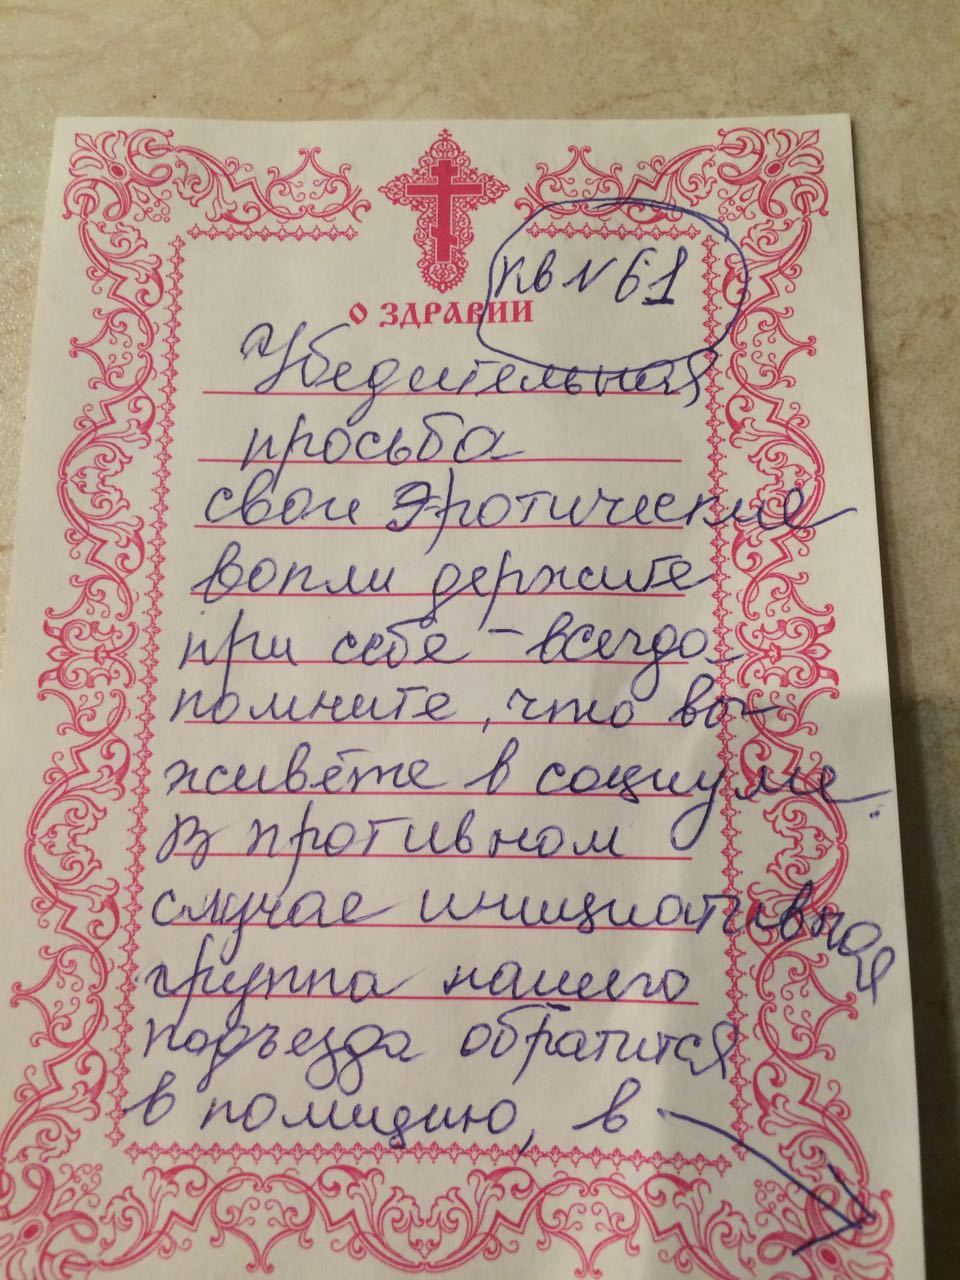 кв N 61
О ЗДРАВИИ
Убедительная
просьба
свои Эротические
вопли держите
при себе - всегда
помните, что вы
живёте в социуме.
В противном
случае инициативная
группа нашего
подъезда обратится
в полицию, в